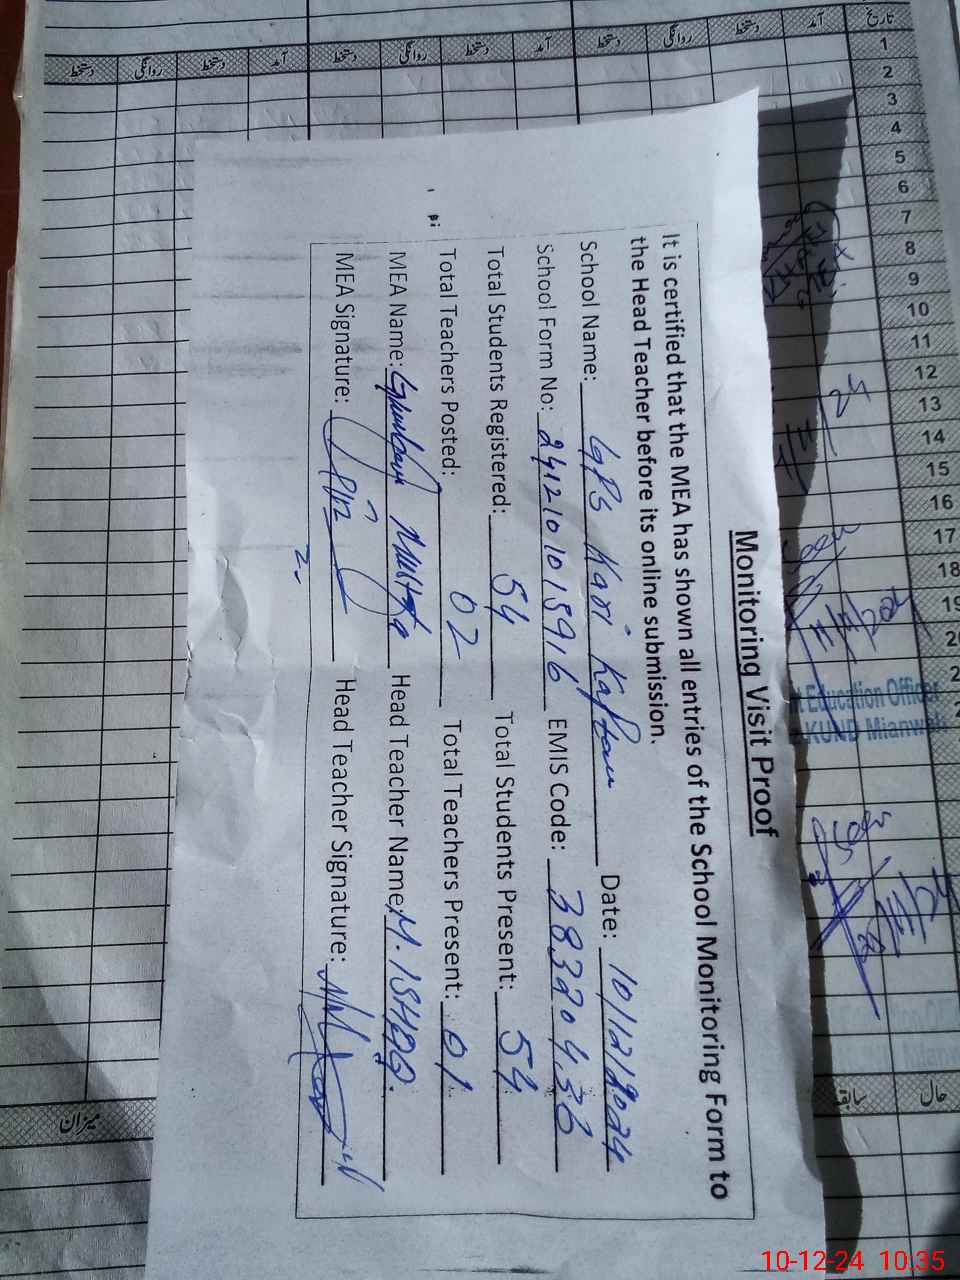 Monitoring Visit Proof
It is certified that the MEA has shown all entries of the School Monitoring Form to
the Head Teacher before its online submission.
School Name: GPS Kari Kaptan Date: 10/12/2024
School Form No: 2412101015916 EMIS Code: 38320456
Total Students Registered: 54 Total Students Present: 54
Total Teachers Posted: 02 Total Teachers Present: 01
MEA Name: Ghulam Mustafa Head Teacher Name: M. ISHAQ.
MEA Signature: Head Teacher Signature:
تاریخ آمد دستخط روانگی دستخط آمد دستخط روانگی دستخط آمد دستخط روانگی دستخط
1
2
3
4
5
6
7
8
9
10
11
12
13
14
15
16
17
18
Education Officer
KUND Mianwali
حال سابقہ میزان
10-12-24 10:35